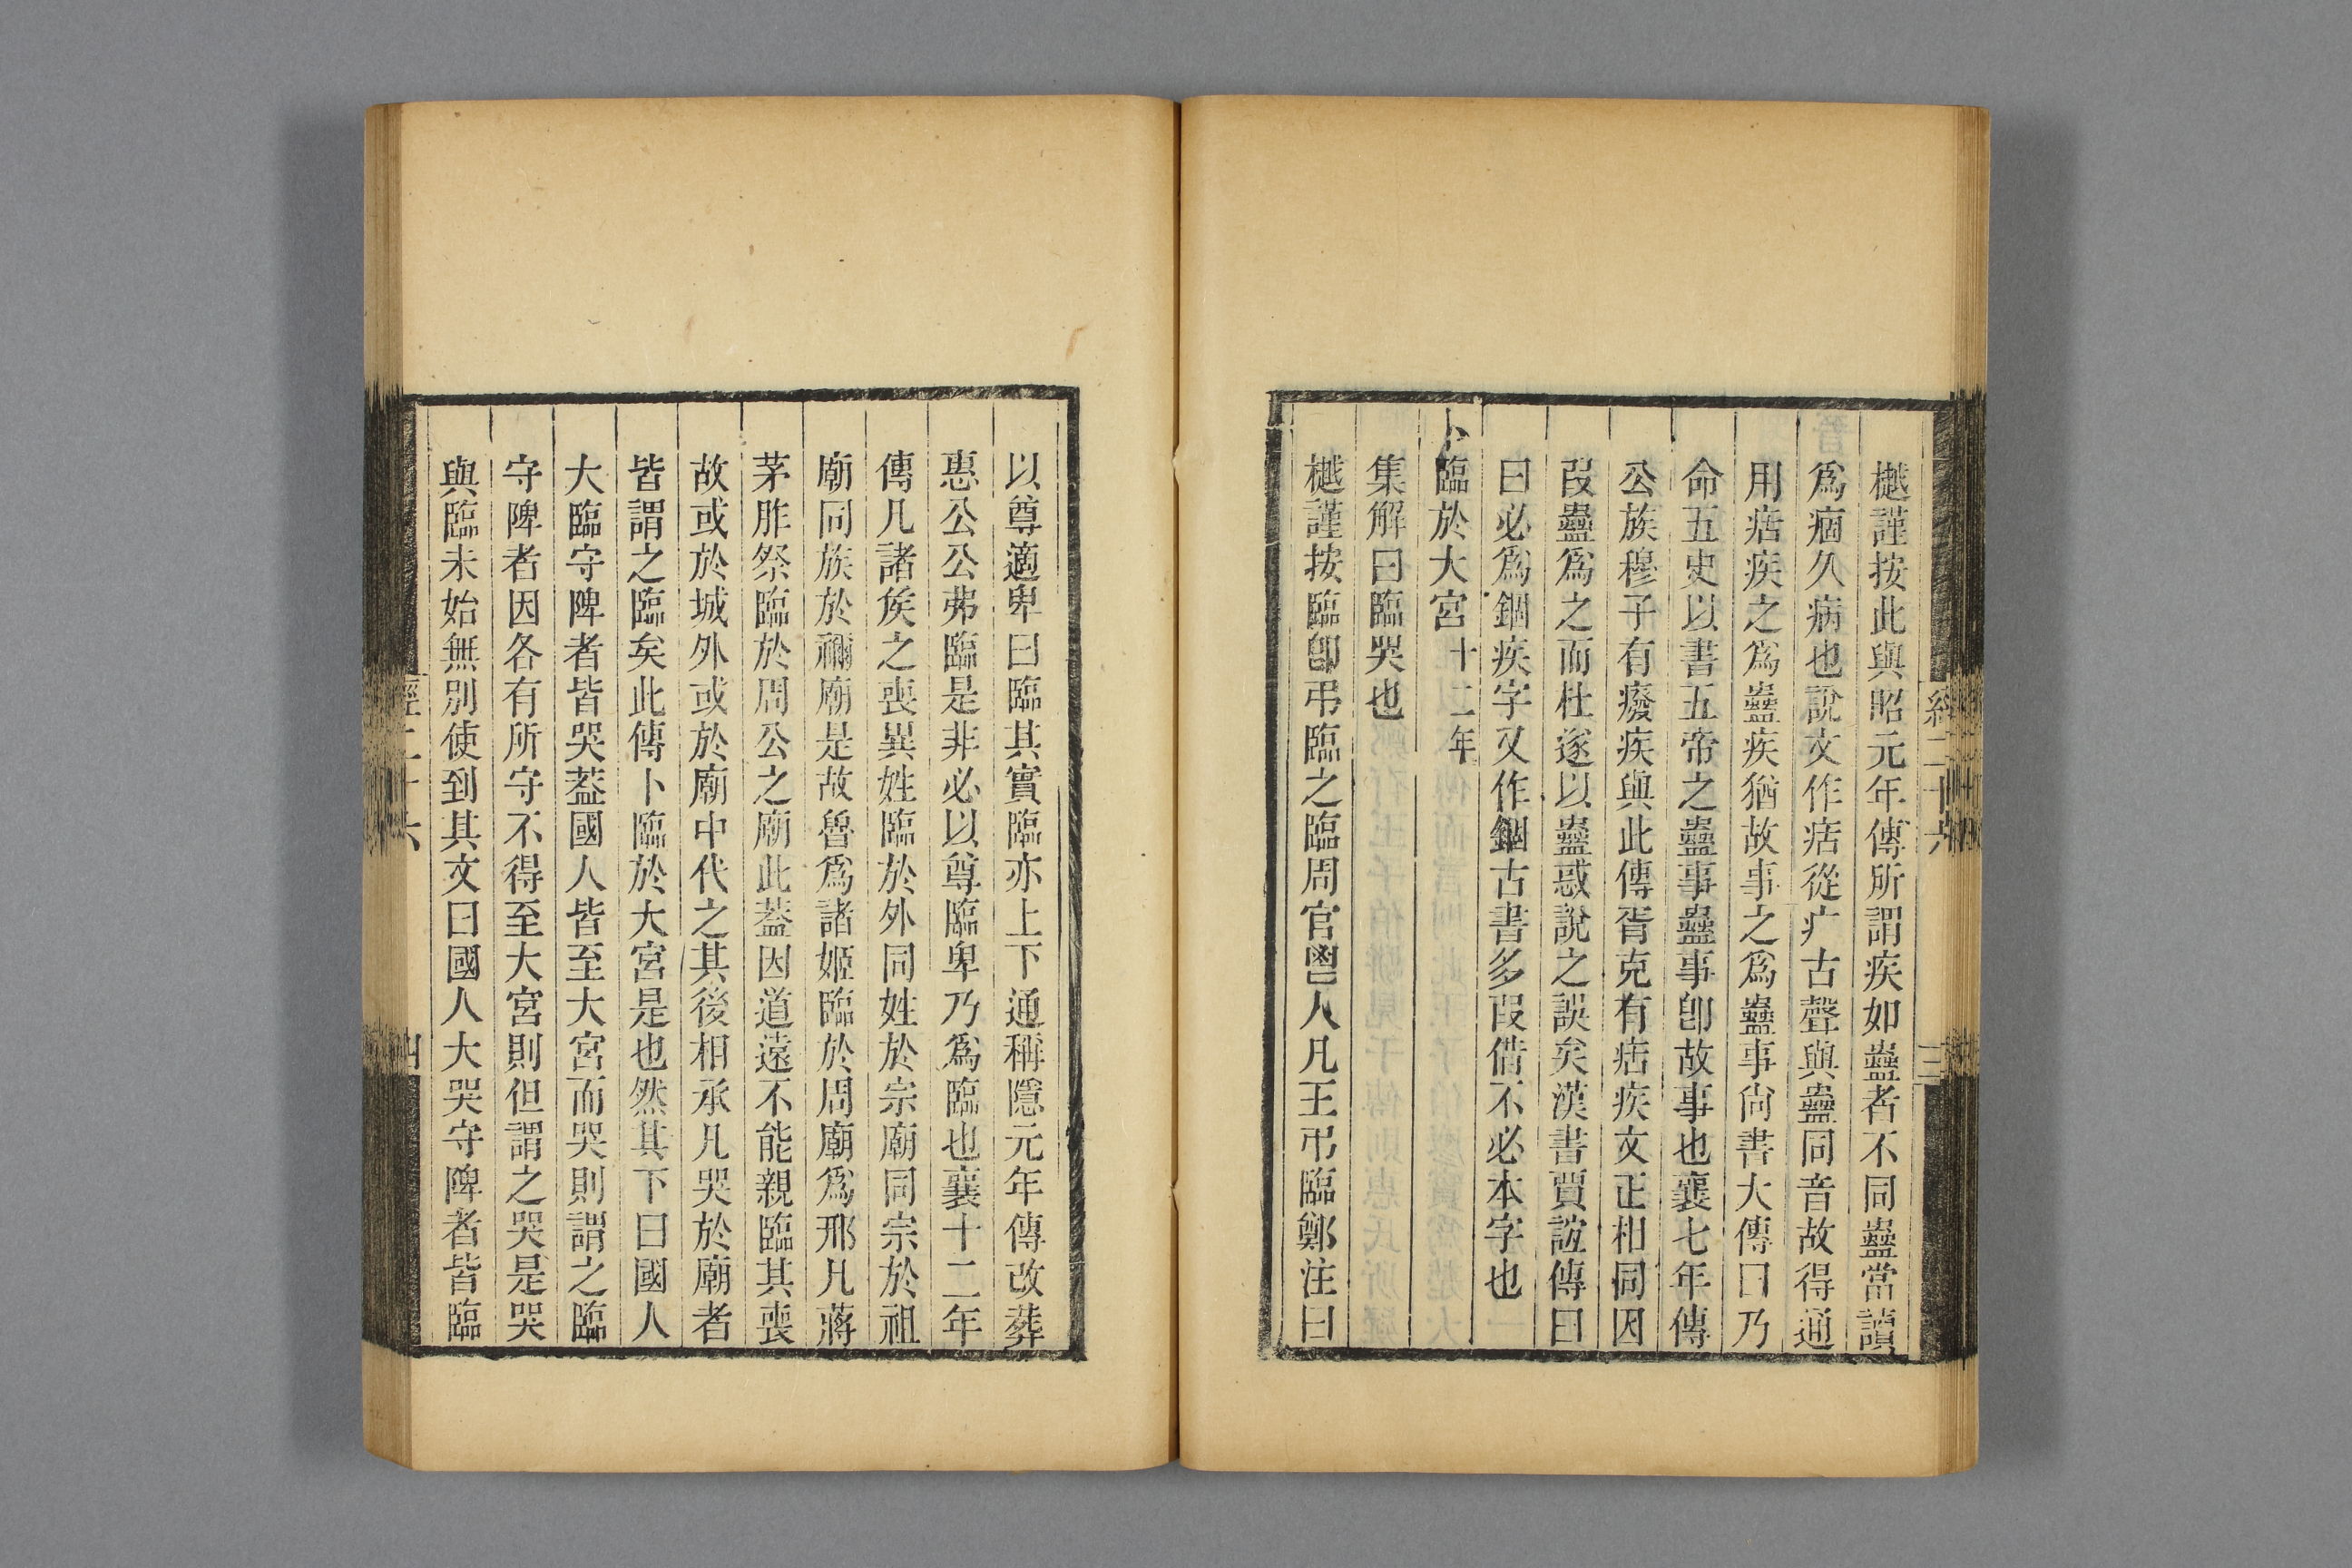 樾謹按此與昭元年傳所謂疾如蠱者不同蠱當讀
爲痼久病也說文作㾇從疒古聲與蠱同音故得通
用㾇疾之爲蠱疾猶故事之爲蠱事尙書大傳曰乃
命五史以書五帝之蠱事蠱事卽故事也襄七年傳
公族穆子有癈疾與此傳胥克有㾇疾文正相同因
叚蠱爲之而杜遂以蠱惑說之誤矣漢書賈誼傳曰
曰必爲錮疾字又作錮古書多叚借不必本字也
卜臨於大宮十二年
集解曰臨哭也
樾謹按臨卽弔臨之臨周官鬯人凡王弔臨鄭注曰
以尊適卑曰臨其實臨亦上下通稱隱元年傳改葬
惠公公弗臨是非必以尊臨卑乃爲臨也襄十二年
傳凡諸矦之喪異姓臨於外同姓於宗廟同宗於祖
廟同族於禰廟是故魯爲諸姬臨於周廟爲邢凡蔣
茅胙祭臨於周公之廟此葢因道遠不能親臨其喪
故或於城外或於廟中代之其後相承凡哭於廟者
皆謂之臨矣此傳卜臨於大宮是也然其下曰國人
大臨守陴者皆哭葢國人皆至大宮而哭則謂之臨
守陴者因各有所守不得至大宮則但謂之哭是哭
與臨未始無別使到其文曰國人大哭守陴者皆臨